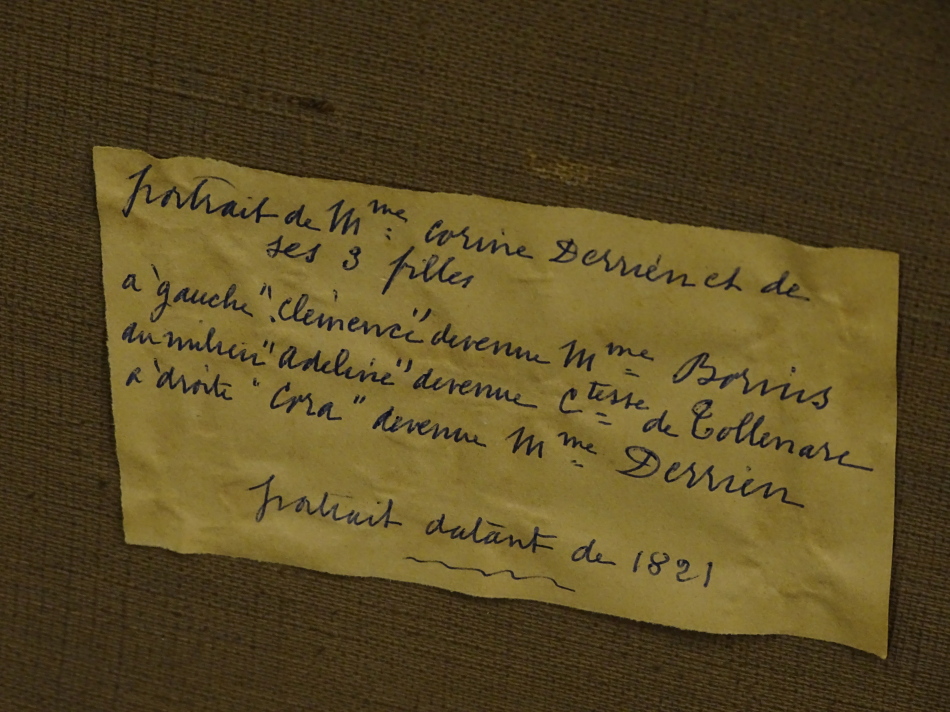 portrait de Mme Corine Derrien et de
ses 3 filles
à gauche "Clémence" devenue Mme Borius
au milieu "Adeline" devenue Ctesse de Tollenare
à droite "Cora" devenue Mme Derrien
portrait datant de 1821